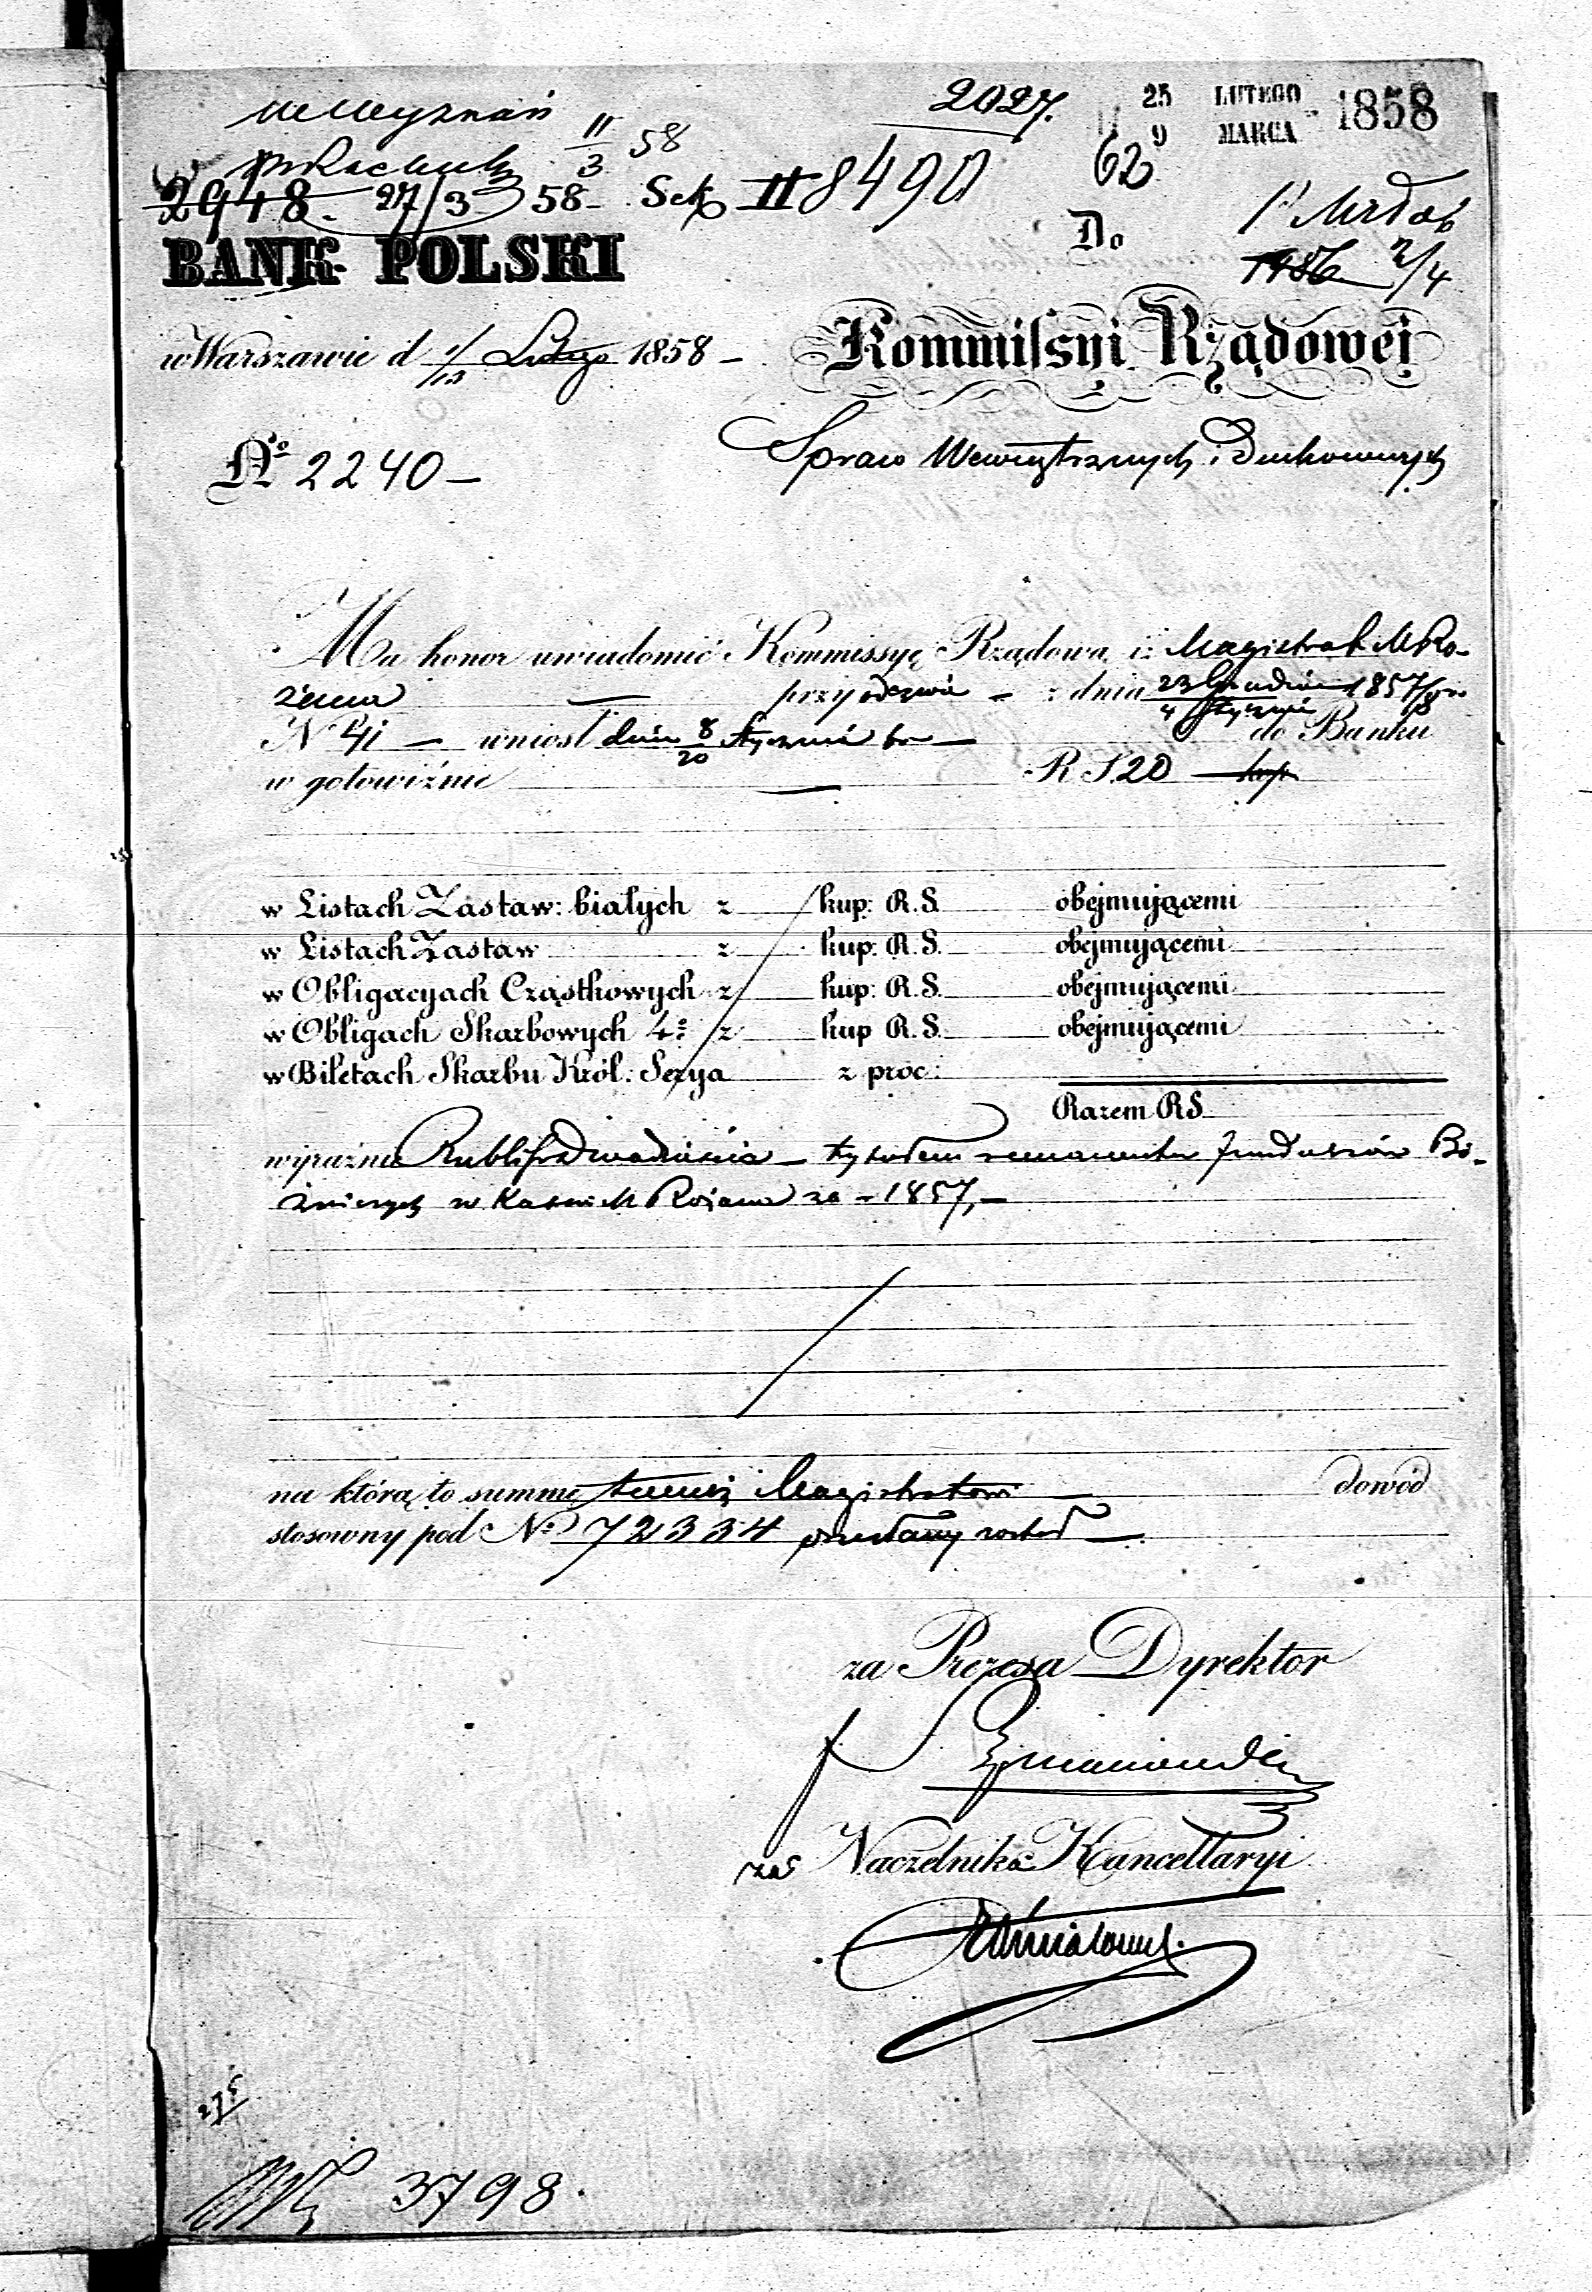 2027.
25 LUTEGO
9 MARCA 1858
II/3 58
62
2948. 27/3 58 Sek II 8490
BANK POLSKI
Do
1486 2/4
w Warszawie d 1/13 Lutego 1858 –
Kommissyi Rządowej
Nº 2240 –
Spraw Wewnętrznych i Duchownych
Ma honor uwiadomić Kommissyę Rządową iż Magistrat M Ro-
żana — przy odezwie – z dnia 23 Grudnia / 4 Stycznia 1857/8
N 41 – wniósł dnia 8/20 Stycznia br – do Banku
w gotowiźnie — R S. 20 kop
w Listach Zastaw: białych z kup: R.S. obejmującemi
w Listach Zastaw z kup: R.S. obejmującemi
w Obligacyach Cząstkowych z kup: R.S. obejmującemi
w Obligach Skarbowych 4% z kup R.S. obejmującemi
w Biletach Skarbu Król: Serya z proc:
Razem RS
wyraźnie Rubli sr Dwadzieścia – tytułem remanentu funduszów Bó-
żniczych w Kassie M Rożana za – 1857, –
na którą to summę temuż Magistratowi — dowód
stosowny pod Nº 72334 przesłany został —
za Prezesa Dyrektor
za Naczelnika Kancellaryi
3798.